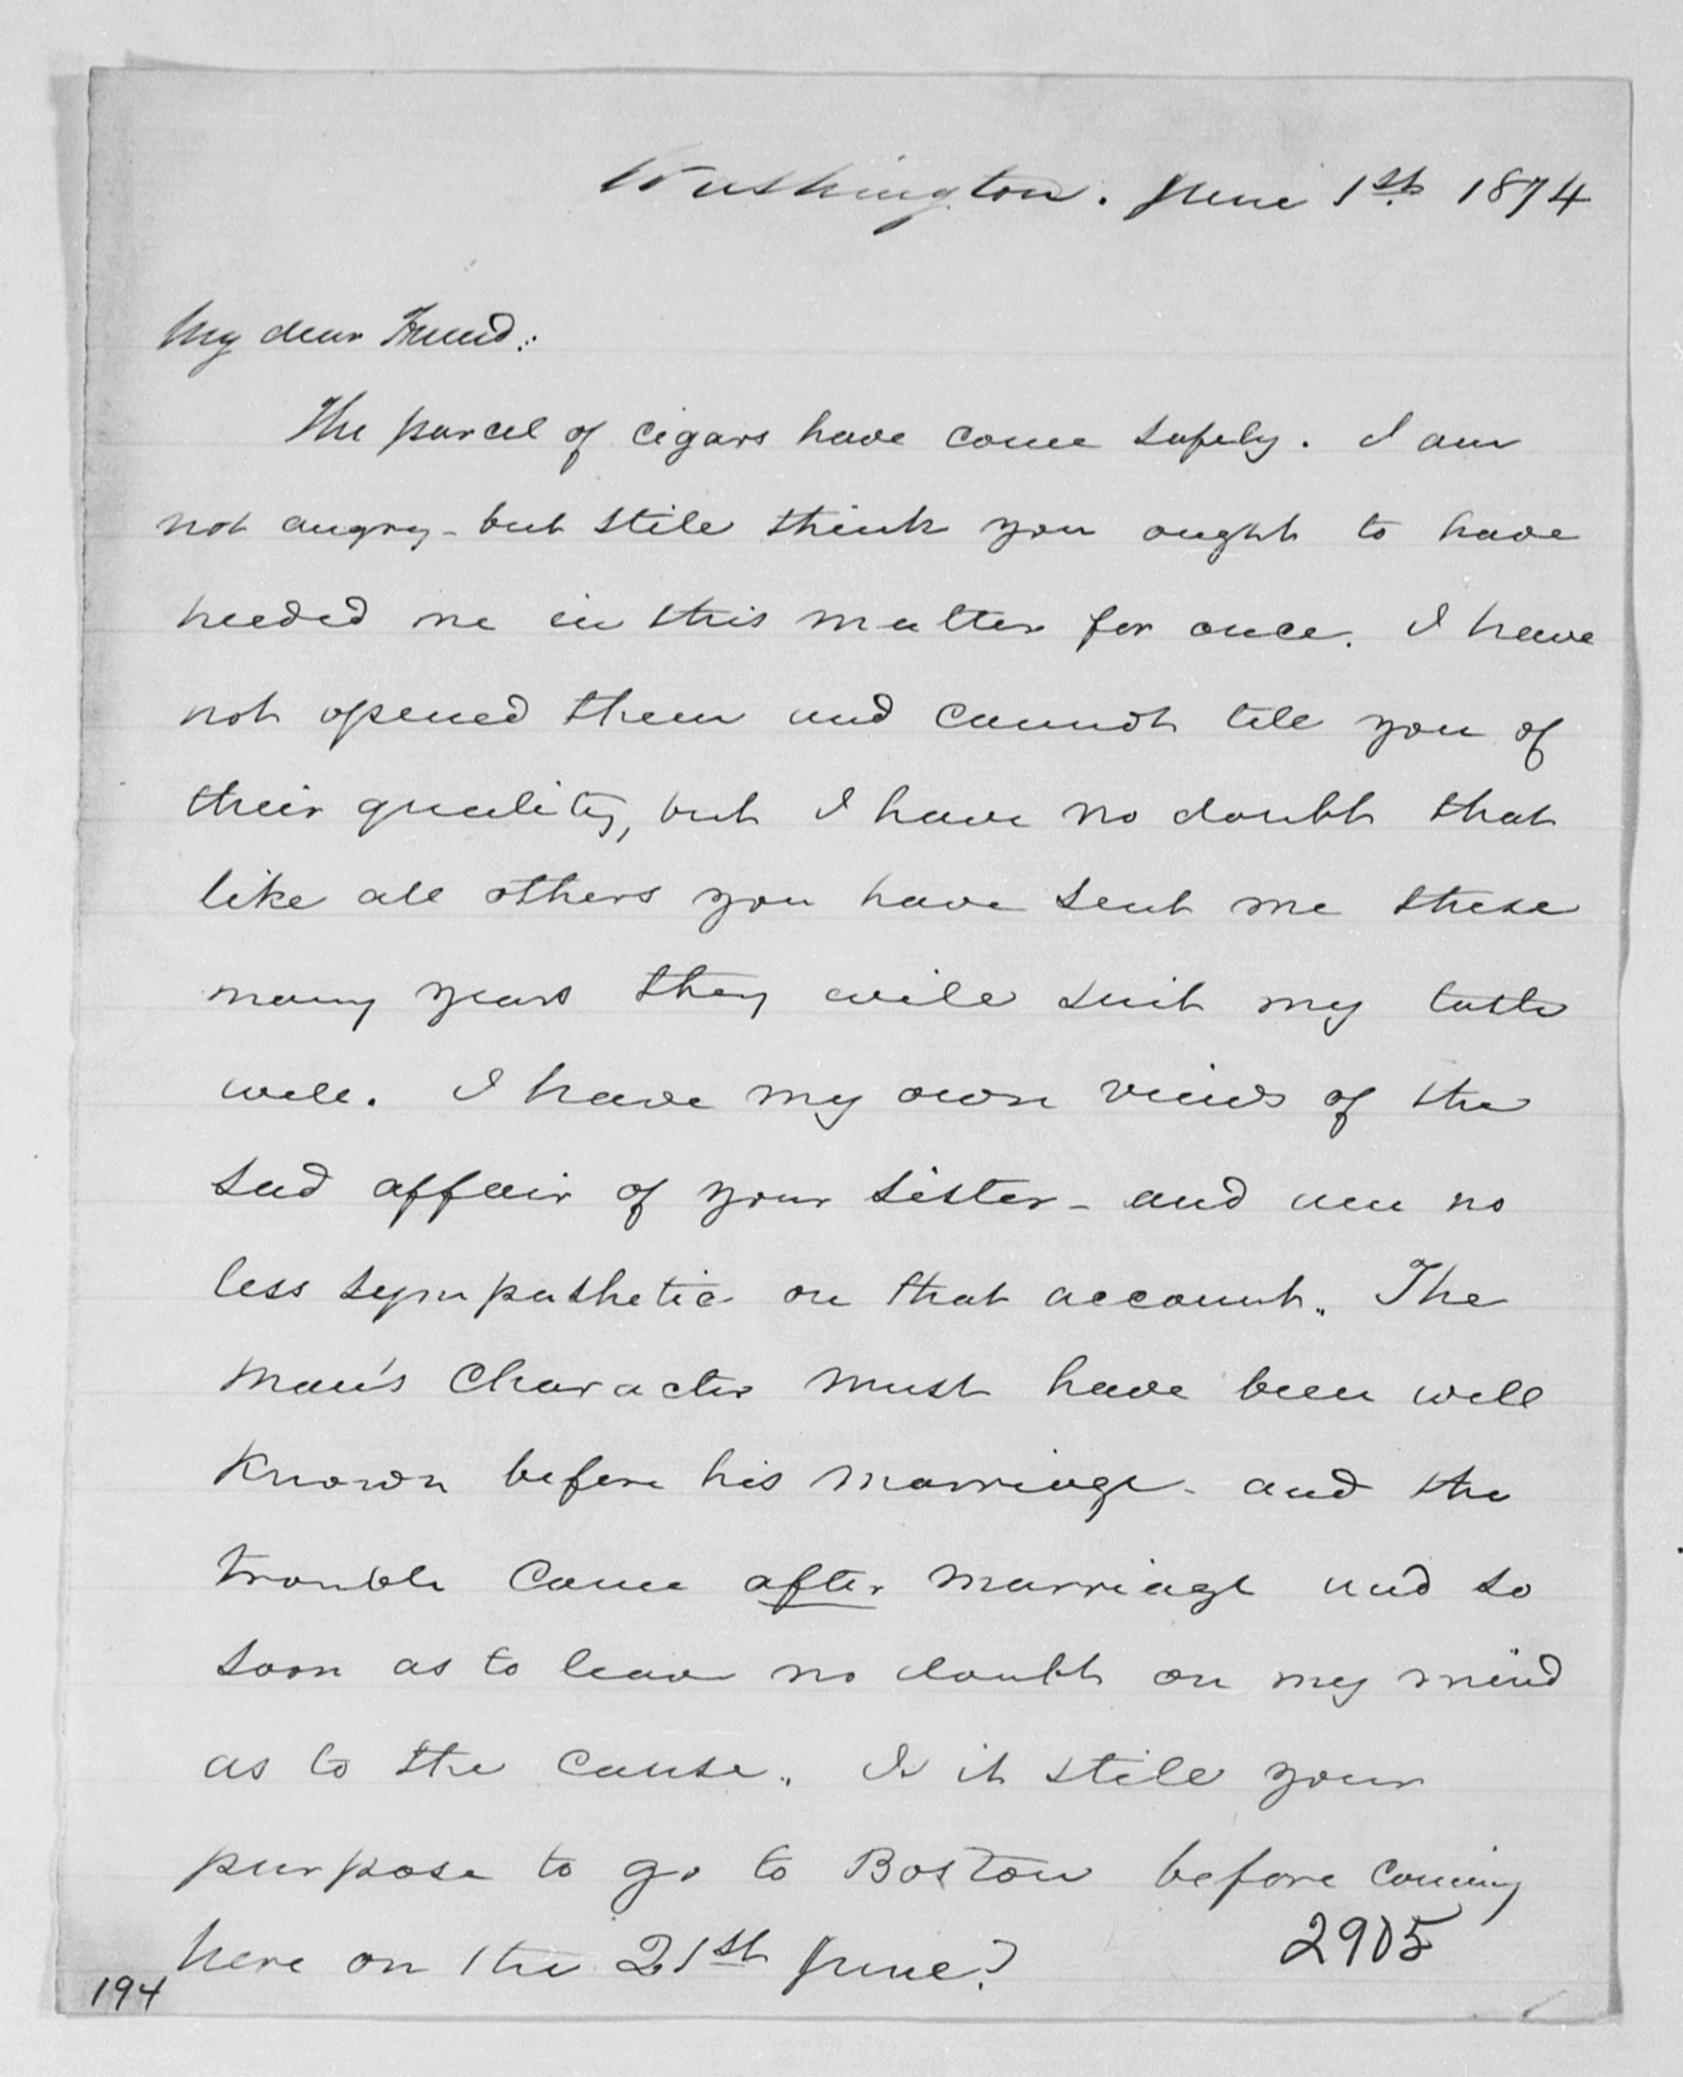 Washington. June 1st 1874
My dear Friend:
The parcel of cigars have come safely. I am
not angry - but still think you ought to have
heeded me in this matter for once. I have
not opened them and cannot tell you of
their quality, but I have no doubt that
like all others you have sent me these
many years they will suit my taste
well. I have my own views of the
sad affair of your sister - and am no
less sympathetic on that account. The
man's character must have been well
known before his marriage - and the
trouble came after marriage and so
soon as to leave no doubt on my mind
as to the cause. Is it still your
purpose to go to Boston before coming
here on the 21st June?
2905
194